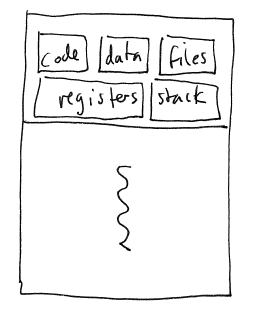 code data files
registers stack